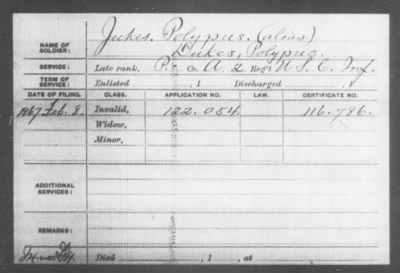 Jukes, Polypus. (alias)
NAME OF SOLDIER: Dukes, Polypus.
SERVICE: Late rank, P. Co. A. 2 Reg't U.S.C. Inf.
TERM OF SERVICE: Enlisted , 1 Discharged , 1
DATE OF FILING. CLASS. APPLICATION NO. LAW. CERTIFICATE NO.
1867 Feb. 8. Invalid, 122.054. 116.786.
Widow,
Minor,
ADDITIONAL SERVICES:
REMARKS:
Died , 1 , at